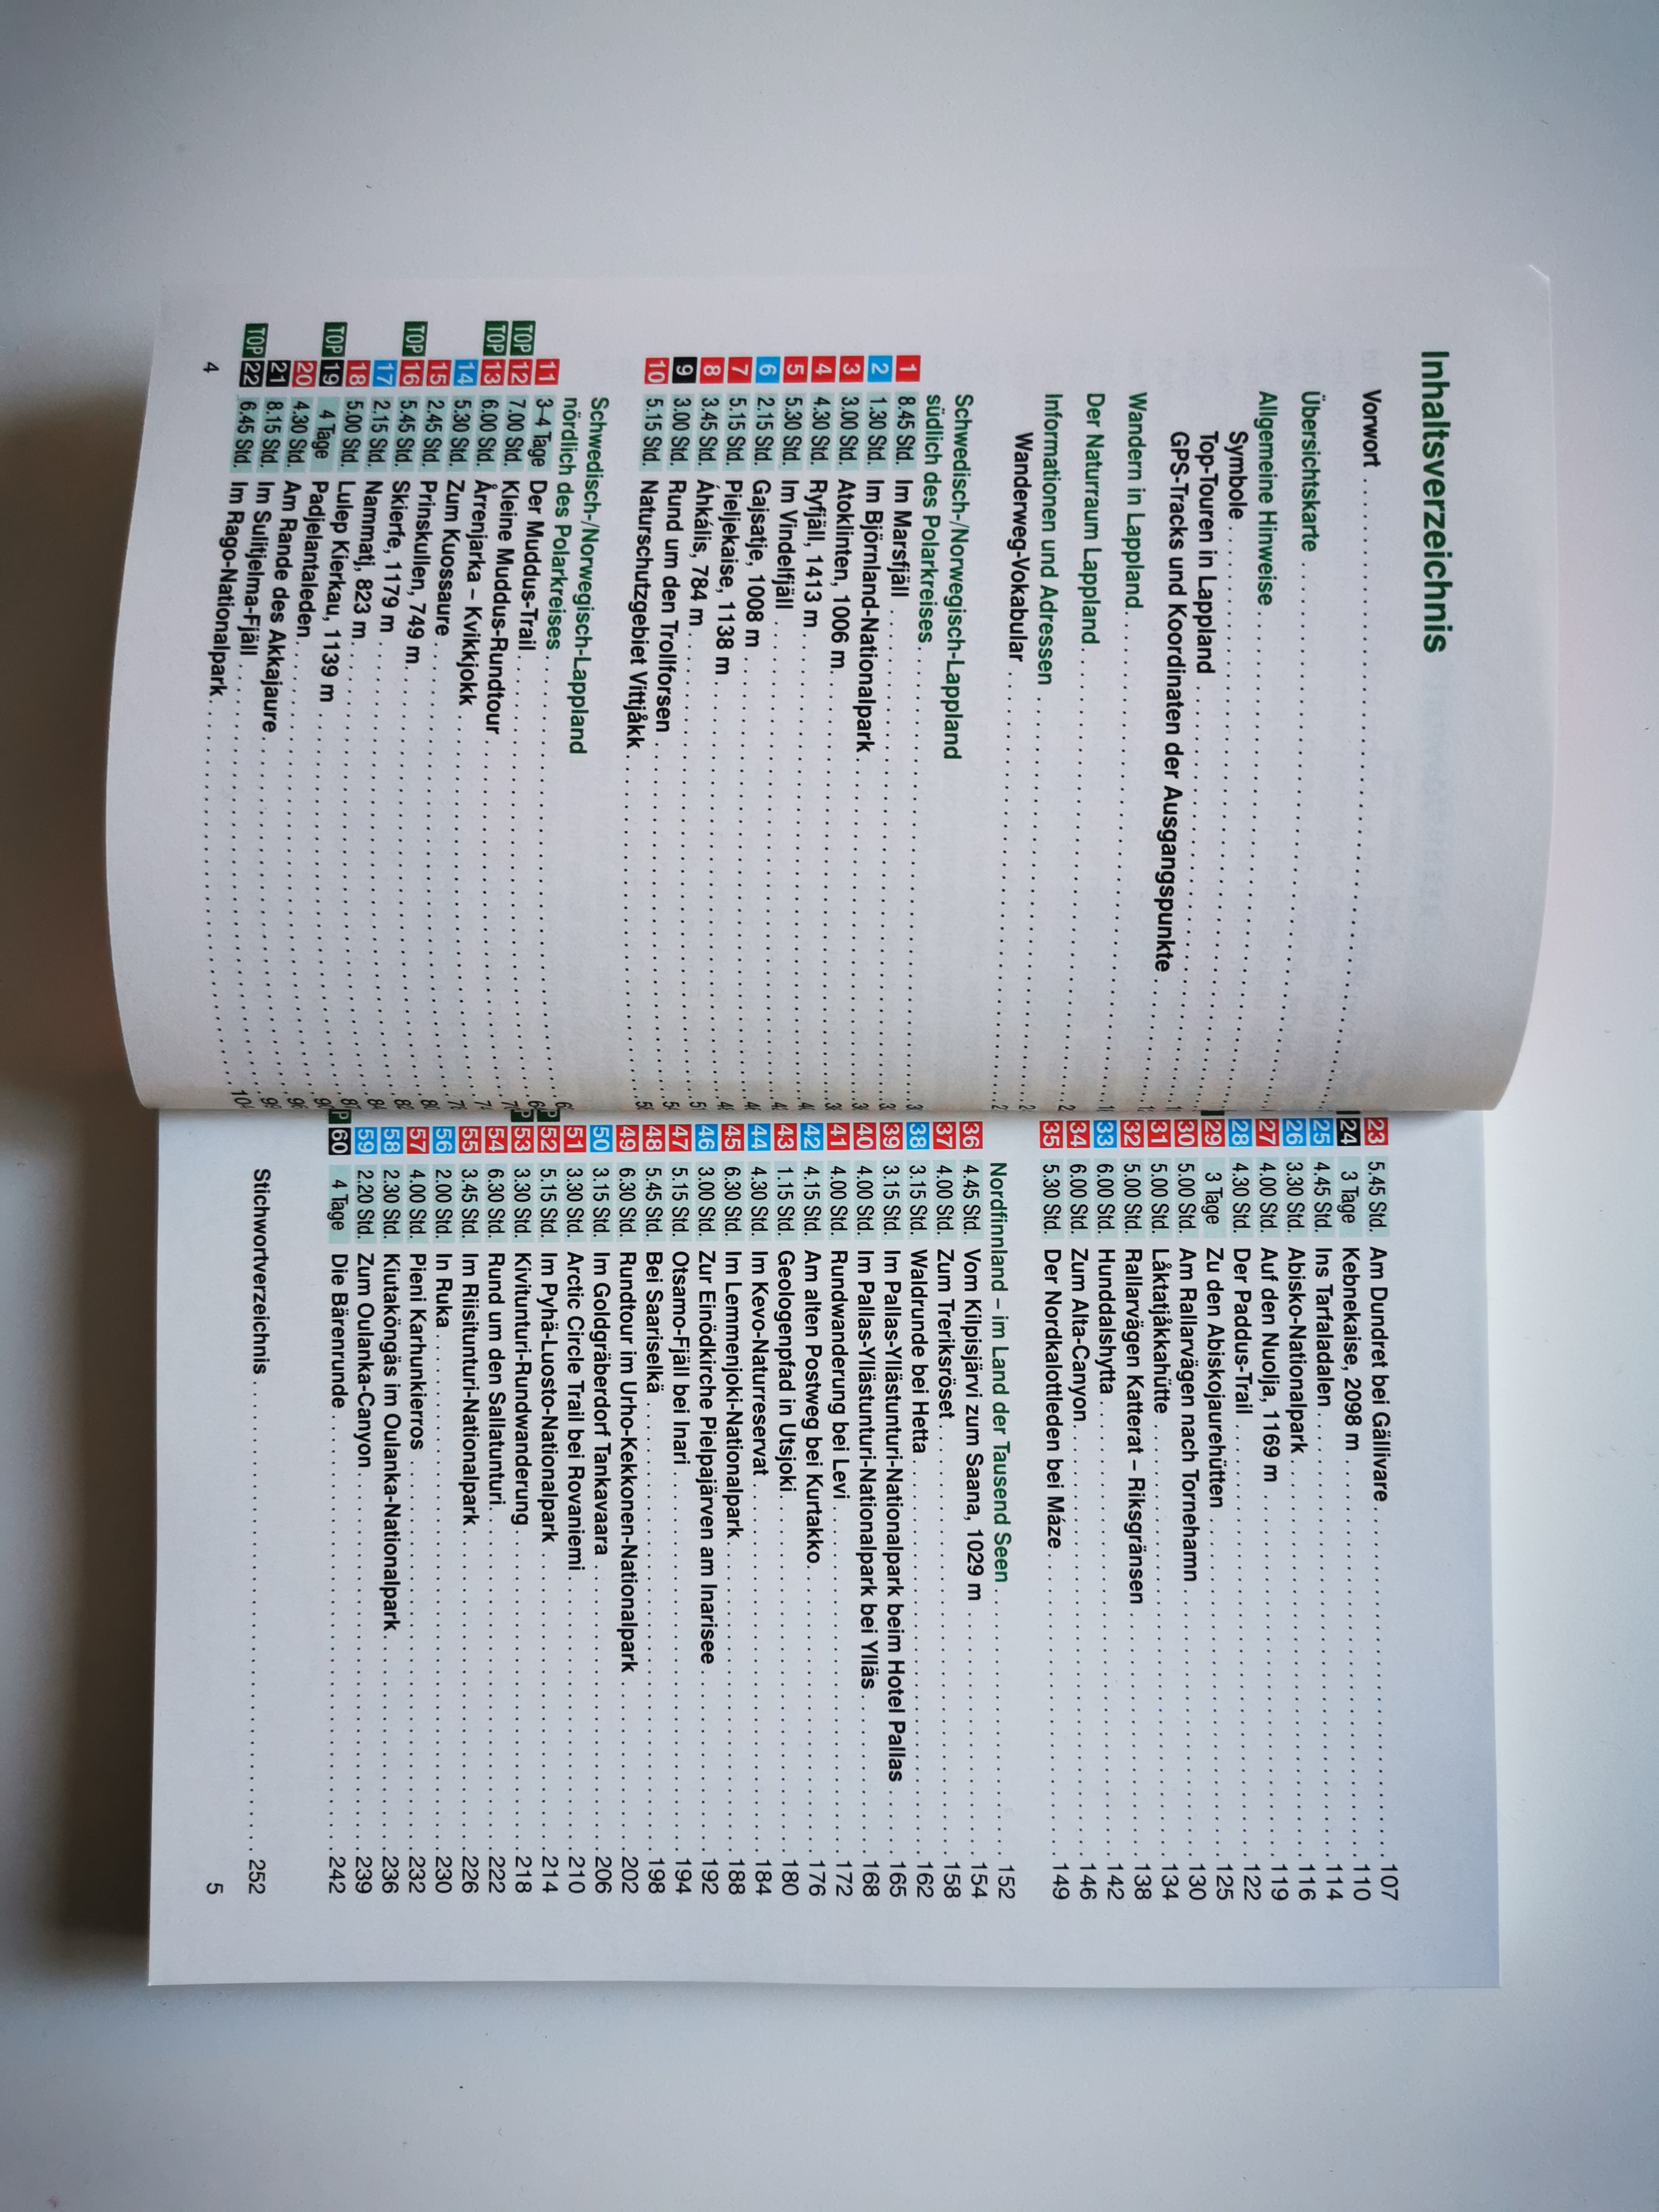 Inhaltsverzeichnis
Vorwort
Übersichtskarte
Allgemeine Hinweise
Symbole
Top-Touren in Lappland
GPS-Tracks und Koordinaten der Ausgangspunkte
Wandern in Lappland
Der Naturraum Lappland
Informationen und Adressen
Wanderweg-Vokabular
Schwedisch-/Norwegisch-Lappland
südlich des Polarkreises
1 8.45 Std. Im Marsfjäll
2 1.30 Std. Im Björnland-Nationalpark
3 3.00 Std. Atoklinten, 1006 m
4 4.30 Std. Ryfjäll, 1413 m
5 5.30 Std. Im Vindelfjäll
6 2.15 Std. Gajsatje, 1008 m
7 5.15 Std. Pieljekaise, 1138 m
8 3.45 Std. Áhkális, 784 m
9 3.00 Std. Rund um den Trollforsen
10 5.15 Std. Naturschutzgebiet Vittjåkk
Schwedisch-/Norwegisch-Lappland
nördlich des Polarkreises
11 3–4 Tage Der Muddus-Trail
TOP 12 7.00 Std. Kleine Muddus-Rundtour
TOP 13 6.00 Std. Årrenjarka – Kvikkjokk
14 5.30 Std. Zum Kuossaure
15 2.45 Std. Prinskullen, 749 m
TOP 16 5.45 Std. Skierfe, 1179 m
17 2.15 Std. Nammatj, 823 m
18 5.00 Std. Lulep Kierkau, 1139 m
TOP 19 4 Tage Padjelantaleden
20 4.30 Std. Am Rande des Akkajaure
21 8.15 Std. Im Sulitjelma-Fjäll
TOP 22 6.45 Std. Im Rago-Nationalpark
4
23 5.45 Std. Am Dundret bei Gällivare 107
24 3 Tage Kebnekaise, 2098 m 110
25 4.45 Std. Ins Tarfaladalen 114
26 3.30 Std. Abisko-Nationalpark 116
27 4.00 Std. Auf den Nuolja, 1169 m 119
28 4.30 Std. Der Paddus-Trail 122
29 3 Tage Zu den Abiskojaurehütten 125
30 5.00 Std. Am Rallarvägen nach Tornehamn 130
31 5.00 Std. Låktatjåkkahütte 134
32 5.00 Std. Rallarvägen Katterat – Riksgränsen 138
33 6.00 Std. Hunddalshytta 142
34 6.00 Std. Zum Alta-Canyon 146
35 5.30 Std. Der Nordkalottleden bei Máze 149
Nordfinnland – im Land der Tausend Seen 152
36 4.45 Std. Vom Kilpisjärvi zum Saana, 1029 m 154
37 4.00 Std. Zum Treriksröset 158
38 3.15 Std. Waldrunde bei Hetta 162
39 3.15 Std. Im Pallas-Yllästunturi-Nationalpark beim Hotel Pallas 165
40 4.00 Std. Im Pallas-Yllästunturi-Nationalpark bei Ylläs 168
41 4.00 Std. Rundwanderung bei Levi 172
42 4.15 Std. Am alten Postweg bei Kurtakko 176
43 1.15 Std. Geologenpfad in Utsjoki 180
44 4.30 Std. Im Kevo-Naturreservat 184
45 6.30 Std. Im Lemmenjoki-Nationalpark 188
46 3.00 Std. Zur Einödkirche Pielpajärven am Inarisee 192
47 5.15 Std. Otsamo-Fjäll bei Inari 194
48 5.45 Std. Bei Saariselkä 198
49 6.30 Std. Rundtour im Urho-Kekkonen-Nationalpark 202
50 3.15 Std. Im Goldgräberdorf Tankavaara 206
51 3.30 Std. Arctic Circle Trail bei Rovaniemi 210
52 5.15 Std. Im Pyhä-Luosto-Nationalpark 214
53 3.30 Std. Kivitunturi-Rundwanderung 218
54 6.30 Std. Rund um den Sallatunturi 222
55 3.45 Std. Im Riisitunturi-Nationalpark 226
56 2.00 Std. In Ruka 230
57 4.00 Std. Pieni Karhunkierros 232
58 2.30 Std. Kiutaköngäs im Oulanka-Nationalpark 236
59 2.20 Std. Zum Oulanka-Canyon 239
60 4 Tage Die Bärenrunde 242
Stichwortverzeichnis 252
5